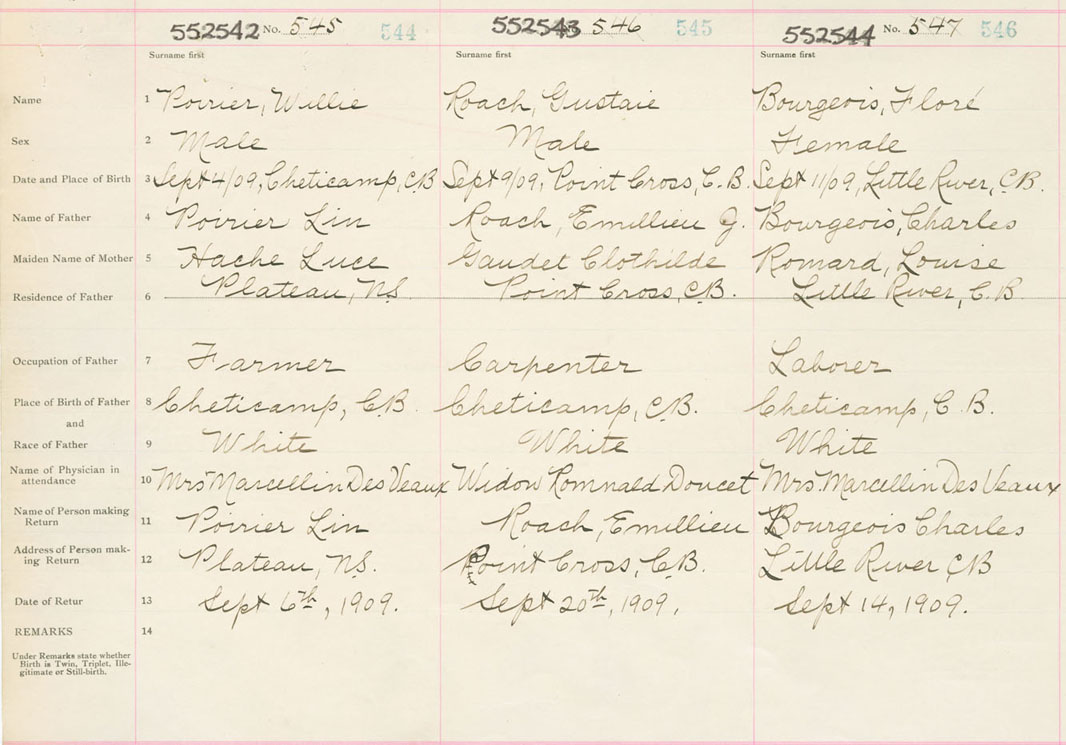 552542 No. 545 544 552543 No. 546 545 552544 No. 547 546
Surname first Surname first Surname first
Name 1 Poirier, Willie Roach, Gustaie Bourgeois, Floré
Sex 2 Male Male Female
Date and Place of Birth 3 Sept 4/09, Cheticamp, CB Sept 9/09, Point Cross, C.B. Sept 11/09, Little River, C.B.
Name of Father 4 Poirier Lin Roach, Emillieu J. Bourgeois, Charles
Maiden Name of Mother 5 Hache Luce Gaudet Clothilde Romard, Louise
Residence of Father 6 Plateau, N.S. Point Cross, C.B. Little River, C.B.
Occupation of Father 7 Farmer Carpenter Laborer
Place of Birth of Father 8 Cheticamp, C.B. Cheticamp, C.B. Cheticamp, C.B.
and
Race of Father 9 White White White
Name of Physician in
attendance 10 Mrs Marcellin DesVeaux Widow Romnald Doucet Mrs. Marcellin DesVeaux
Name of Person making
Return 11 Poirier Lin Roach, Emillieu Bourgeois Charles
Address of Person mak-
ing Return 12 Plateau, N.S. Point Cross, C.B. Little River C.B
Date of Retur 13 Sept 6th, 1909. Sept 20th, 1909. Sept 14, 1909.
REMARKS 14
Under Remarks state whether
Birth is Twin, Triplet, Ille-
gitimate or Still-birth.